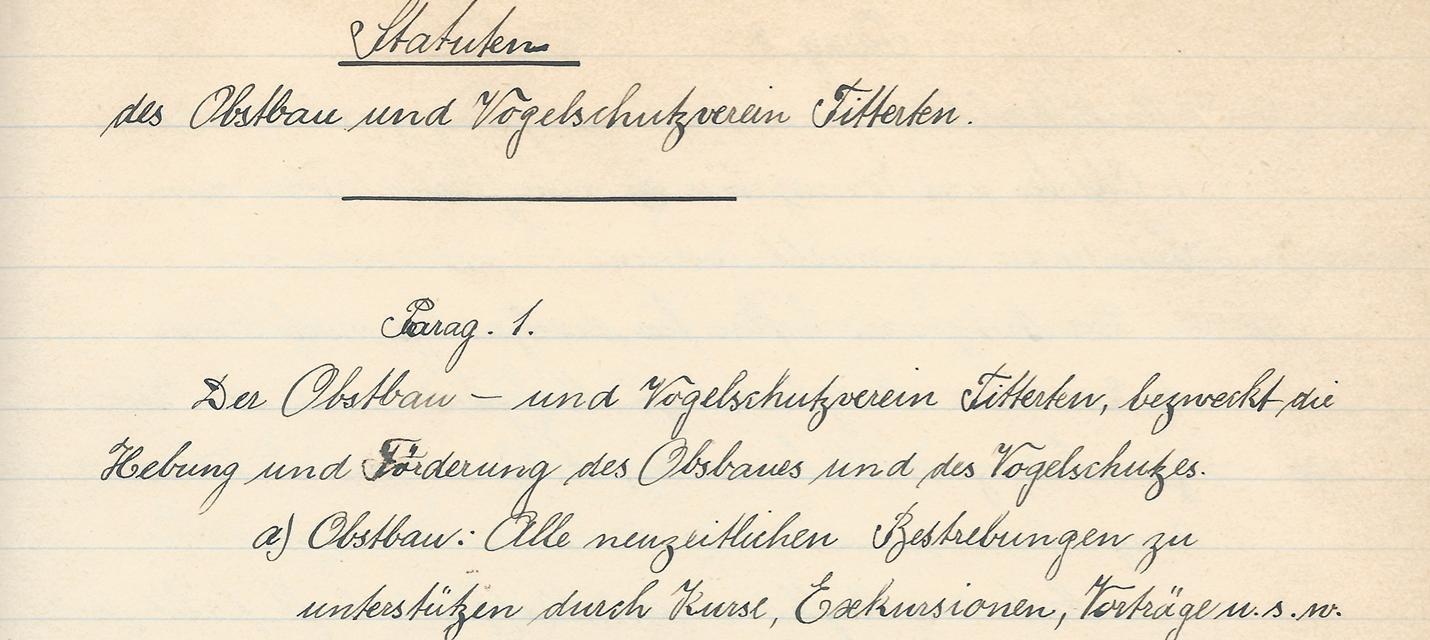 Statuten
des Obstbau und Vogelschutzverein Titterten.
Parag. 1.
Der Obstbau - und Vogelschutzverein Titterten, bezweckt die
Hebung und Förderung des Obsbaues und des Vogelschutzes.
a) Obstbau: Alle neuzeitlichen Bestrebungen zu
unterstützen durch Kurse, Exkursionen, Vorträge u. s. w.